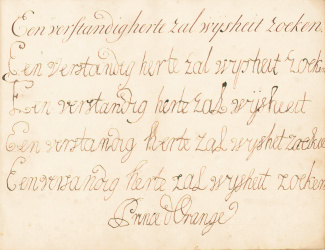 Een verstandig herte zal wysheit zoeken.
Een verstandig herte zal wysheit zoeken
Een verstandig herte zal wysheit
Een verstandig herte zal wyshet zoeken
Een vervandig herte zal wysheit zoeken
Prince d'Orange